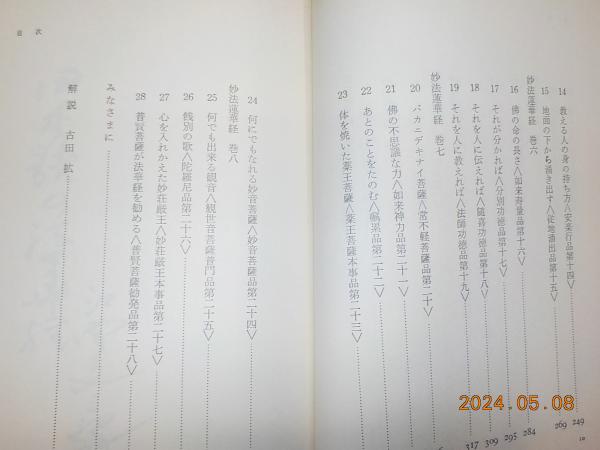 14 教える人の身の持ち方〈安楽行品第十四〉 249
15 地面の下から涌き出す〈従地涌出品第十五〉 269
妙法蓮華経 巻六
16 佛の命の長さ〈如来寿量品第十六〉 284
17 それが分かれば〈分別功徳品第十七〉 295
18 それを人に伝えれば〈随喜功徳品第十八〉 309
19 それを人に教えれば〈法師功徳品第十九〉 317
妙法蓮華経 巻七
20 バカニデキナイ菩薩〈常不軽菩薩品第二十〉
21 佛の不思議な力〈如来神力品第二十一〉
22 あとのことをたのむ〈嘱累品第二十二〉
23 体を焼いた薬王菩薩〈薬王菩薩本事品第二十三〉
10
目次
24 何にでもなれる妙音菩薩〈妙音菩薩品第二十四〉
妙法蓮華経 巻八
25 何でも出来る観音〈観世音菩薩普門品第二十五〉
26 餞別の歌〈陀羅尼品第二十六〉
27 心を入れかえた妙荘厳王〈妙荘厳王本事品第二十七〉
28 普賢菩薩が法華経を勧める〈普賢菩薩勧発品第二十八〉
みなさまに
解説 古田紘
2024.05.08